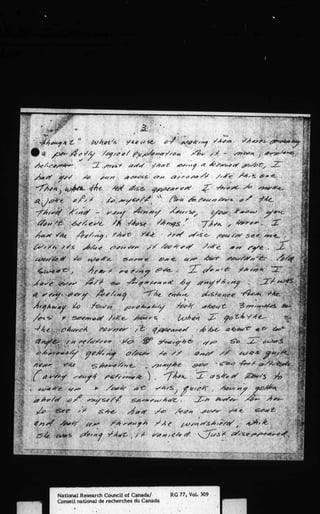 3.
thought " what's the use of making them there's probably
a perfectly logical explanation for it - moon, airplane,
helicopter" I must add that being a licensed pilot, I
had yet to run across an aircraft like this one.
Then, when the red disc appeared I tried to make
a joke of it to myself "Close Encounters of the
Third Kind - very funny Louise, you know you
don't believe in those things." Then, I
had the feeling, that the red disc could see me.
With its blue center it looked like an eye. I
wanted to wake some one up but couldn't. Cold
sweat, heart racing etc. I don't think I
have ever felt so frightened by anything. It was
a very eery feeling. The entire distance from the
highway to town, probably took about 3 minutes or
less & seemed like hours. When I got to the
the church corner, it appeared to be about at
angle in relation to straight up. So I was
obviously getting closer to it and it was quite
near the shoreline maybe one - two feet
(a very rough estimate). Then I asked to
wake up & look at this, quick, having gotten
ahold of myself somewhat. In order for her
to see it she had to lean over the seat
and look up through the windshield, while
she was doing that, it vanished. Just disappeared
National Research Council of Canada/ RG 77, Vol. 309
Conseil national de recherches du Canada